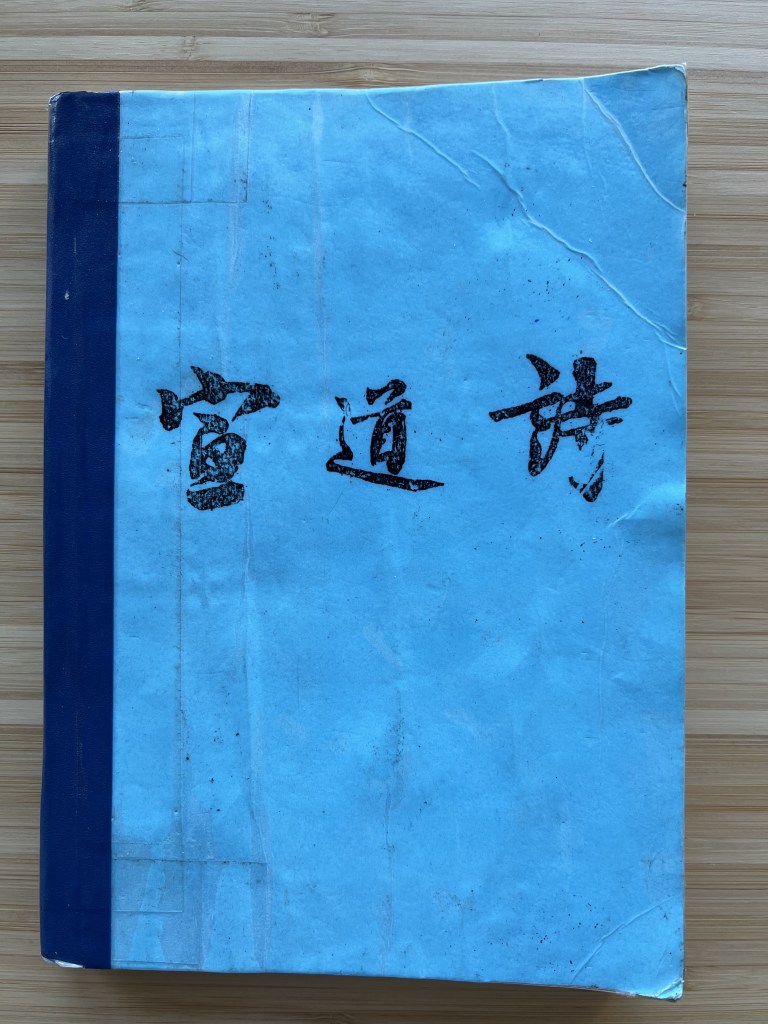 宣道詩